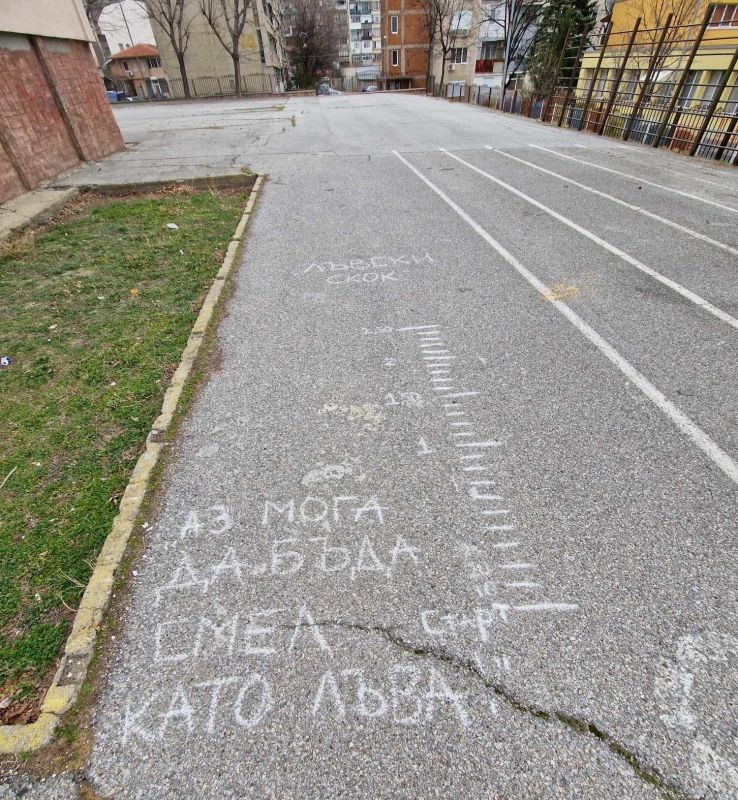 ЛЪВСКИ
СКОК
2
1
"АЗ МОГА
ДА БЪДА
СМЕЛ
КАТО ЛЪВА!"
Старт